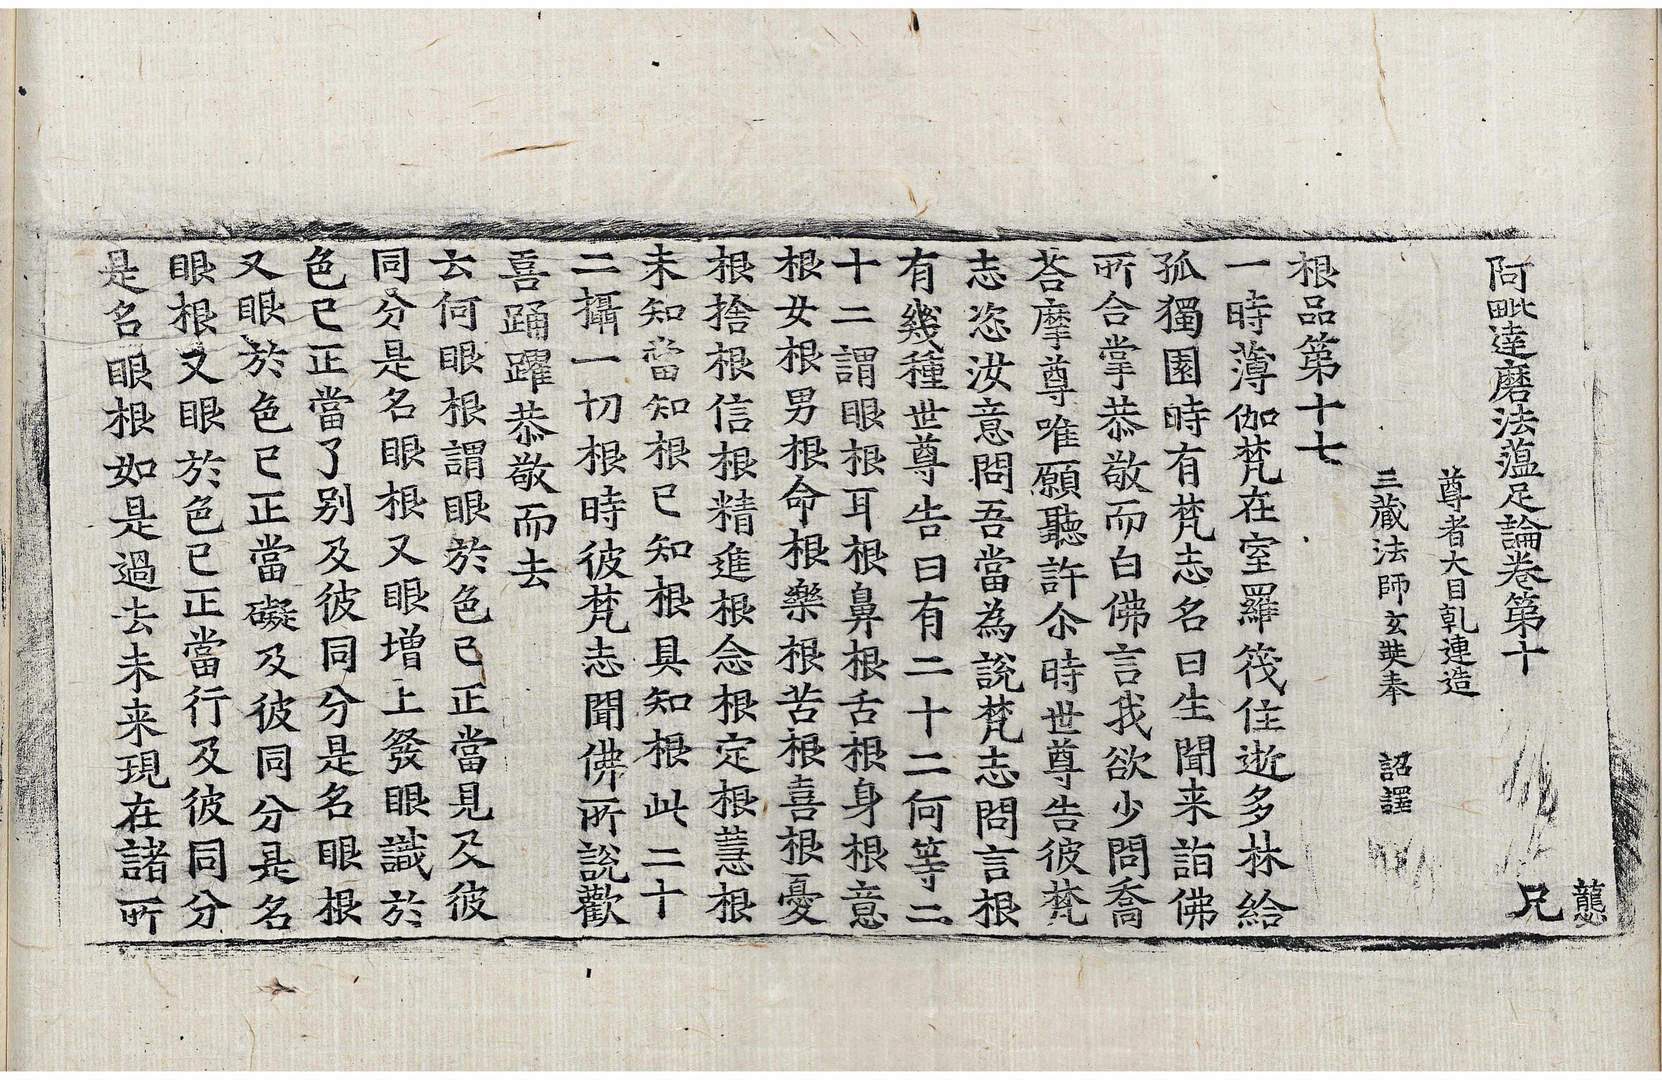 阿毗達磨法蘊足論卷第十 兄
龔
尊者大目乹連造
三藏法師玄奘奉 詔譯
根品第十七
一時薄伽梵在室羅筏住逝多林給
孤獨園時有梵志名曰生聞来詣佛
所合掌恭敬而白佛言我欲少問喬
荅摩尊唯願聽許尒時世尊告彼梵
志恣汝意問吾當為說梵志問言根
有幾種世尊告曰有二十二何等二
十二謂眼根耳根鼻根舌根身根意
根女根男根命根樂根苦根喜根憂
根捨根信根精進根念根定根慧根
未知當知根已知根具知根此二十
二攝一切根時彼梵志聞佛所說歡
喜踊躍恭敬而去
云何眼根謂眼於色已正當見及彼
同分是名眼根又眼增上發眼識於
色已正當了別及彼同分是名眼根
又眼於色已正當礙及彼同分是名
眼根又眼於色已正當行及彼同分
是名眼根如是過去未来現在諸所